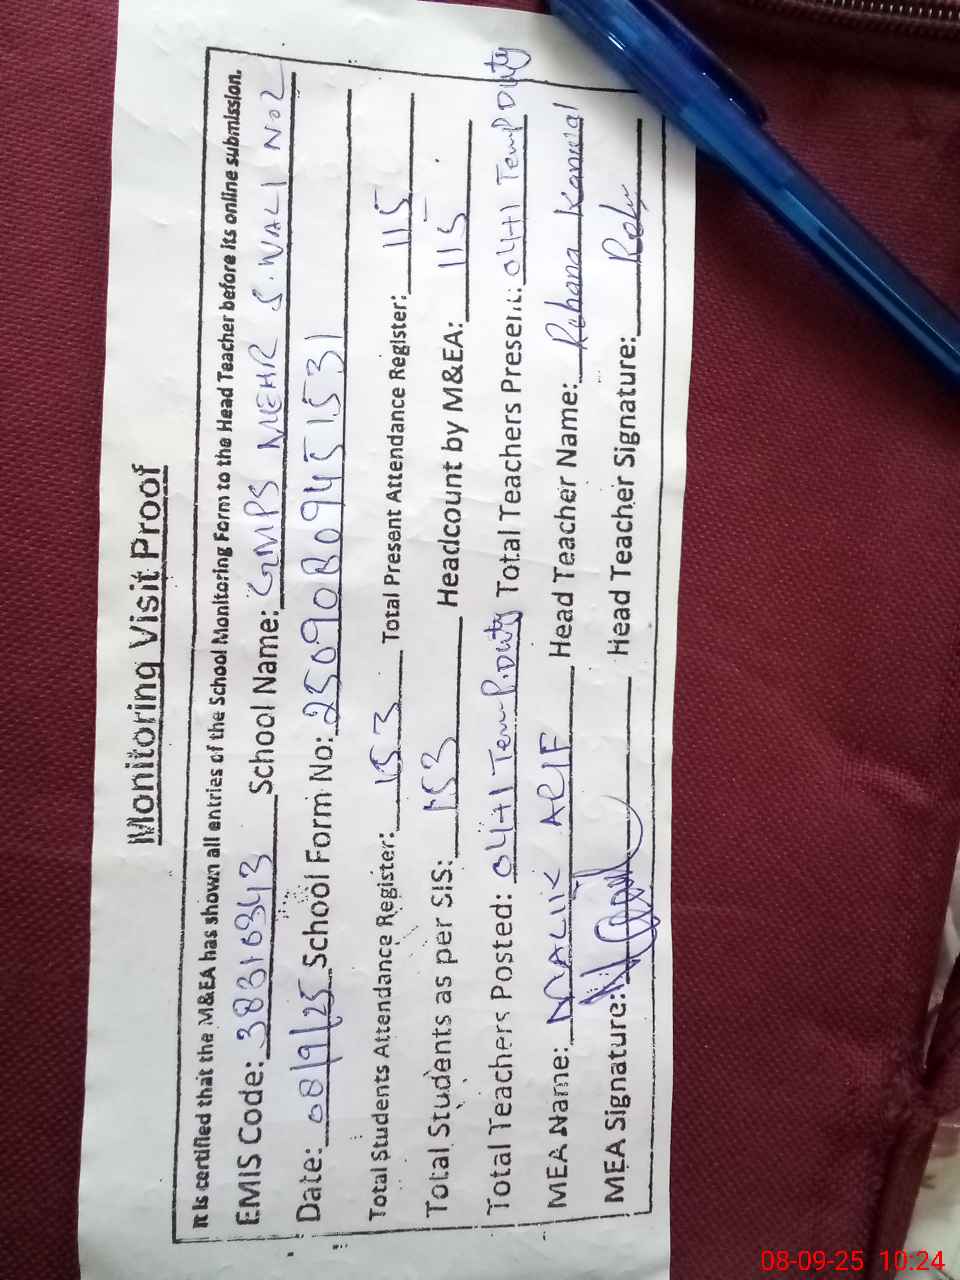 Monitoring Visit Proof
It is certified that the M&EA has shown all entries of the School Monitoring Form to the Head Teacher before its online submission.
EMIS Code: 38316343 School Name: GMPS MEHR S.WALI NO2
Date: 08/9/25 School Form No: 250908094515 31
Total Students Attendance Register: 153 Total Present Attendance Register: 115
Total Students as per SIS: 153 Headcount by M&EA: 115
Total Teachers Posted: 04+1 Temp.Duty Total Teachers Present: 04+1 Temp Duty
MEA Name: MALIK ARIF Head Teacher Name: Rehana Kanwal
MEA Signature: Head Teacher Signature:
08-09-25 10:24